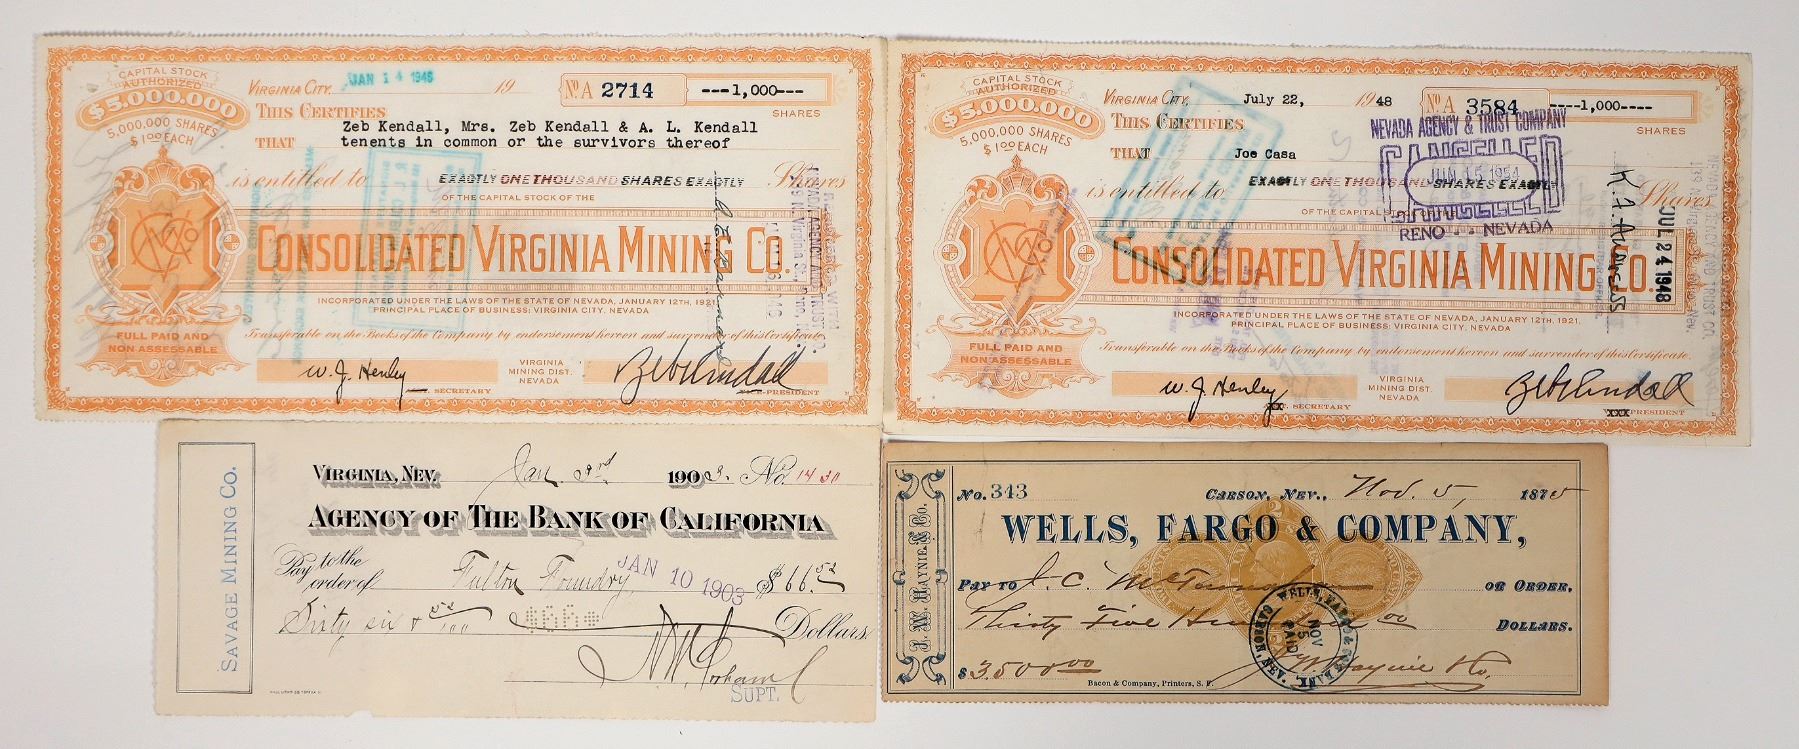 CAPITAL STOCK
AUTHORIZED
$5.000.000
5,000,000 SHARES
$1.00 EACH
VIRGINIA CITY, JAN 14 1946 19
No. A 2714
---1,000---
SHARES
THIS CERTIFIES
THAT
Zeb Kendall, Mrs. Zeb Kendall & A. L. Kendall
tenents in common or the survivors thereof
is entitled to EXACTLY ONE THOUSAND SHARES EXACTLY Shares
OF THE CAPITAL STOCK OF THE
CONSOLIDATED VIRGINIA MINING CO.
INCORPORATED UNDER THE LAWS OF THE STATE OF NEVADA, JANUARY 12TH, 1921.
PRINCIPAL PLACE OF BUSINESS: VIRGINIA CITY, NEVADA
Transferable on the Books of the Company by endorsement hereon and surrender of this Certificate.
FULL PAID AND
NON ASSESSABLE
W. J. Henley
SECRETARY
VIRGINIA
MINING DIST.
NEVADA
Zeb Kendall
VICE-PRESIDENT
CAPITAL STOCK
AUTHORIZED
$5.000.000
5,000,000 SHARES
$1.00 EACH
VIRGINIA CITY, July 22, 1948
No. A 3584
----1,000----
SHARES
THIS CERTIFIES
THAT Joe Casa
NEVADA AGENCY & TRUST COMPANY
CANCELLED
JUN 15 1954
RENO - - NEVADA
is entitled to EXACTLY ONE THOUSAND SHARES EXACTLY Shares
OF THE CAPITAL STOCK OF THE
CONSOLIDATED VIRGINIA MINING CO.
JUL 24 1948
INCORPORATED UNDER THE LAWS OF THE STATE OF NEVADA, JANUARY 12TH, 1921.
PRINCIPAL PLACE OF BUSINESS: VIRGINIA CITY, NEVADA
Transferable on the Books of the Company by endorsement hereon and surrender of this Certificate.
FULL PAID AND
NON ASSESSABLE
W. J. Henley
SECRETARY
VIRGINIA
MINING DIST.
NEVADA
Zeb Kendall
PRESIDENT
SAVAGE MINING CO.
VIRGINIA, NEV. Jan. 3rd 1903. No. 1430
AGENCY OF THE BANK OF CALIFORNIA
Pay to the
order of Fulton Foundry $66.52
JAN 10 1903
Sixty six & 52/100 Dollars
$66
SUPT.
J. W. HAYNIE & CO.
No. 343 CARSON, NEV., Nov. 5, 1875
WELLS, FARGO & COMPANY,
PAY TO J. C. OR ORDER,
Thirty Five Hundred 00 DOLLARS.
$3500.00
WELLS, FARGO & COS BANK
NOV 5 PAID
CARSON, NEV.
J. W. Haynie & Co.
Bacon & Company, Printers, S. F.